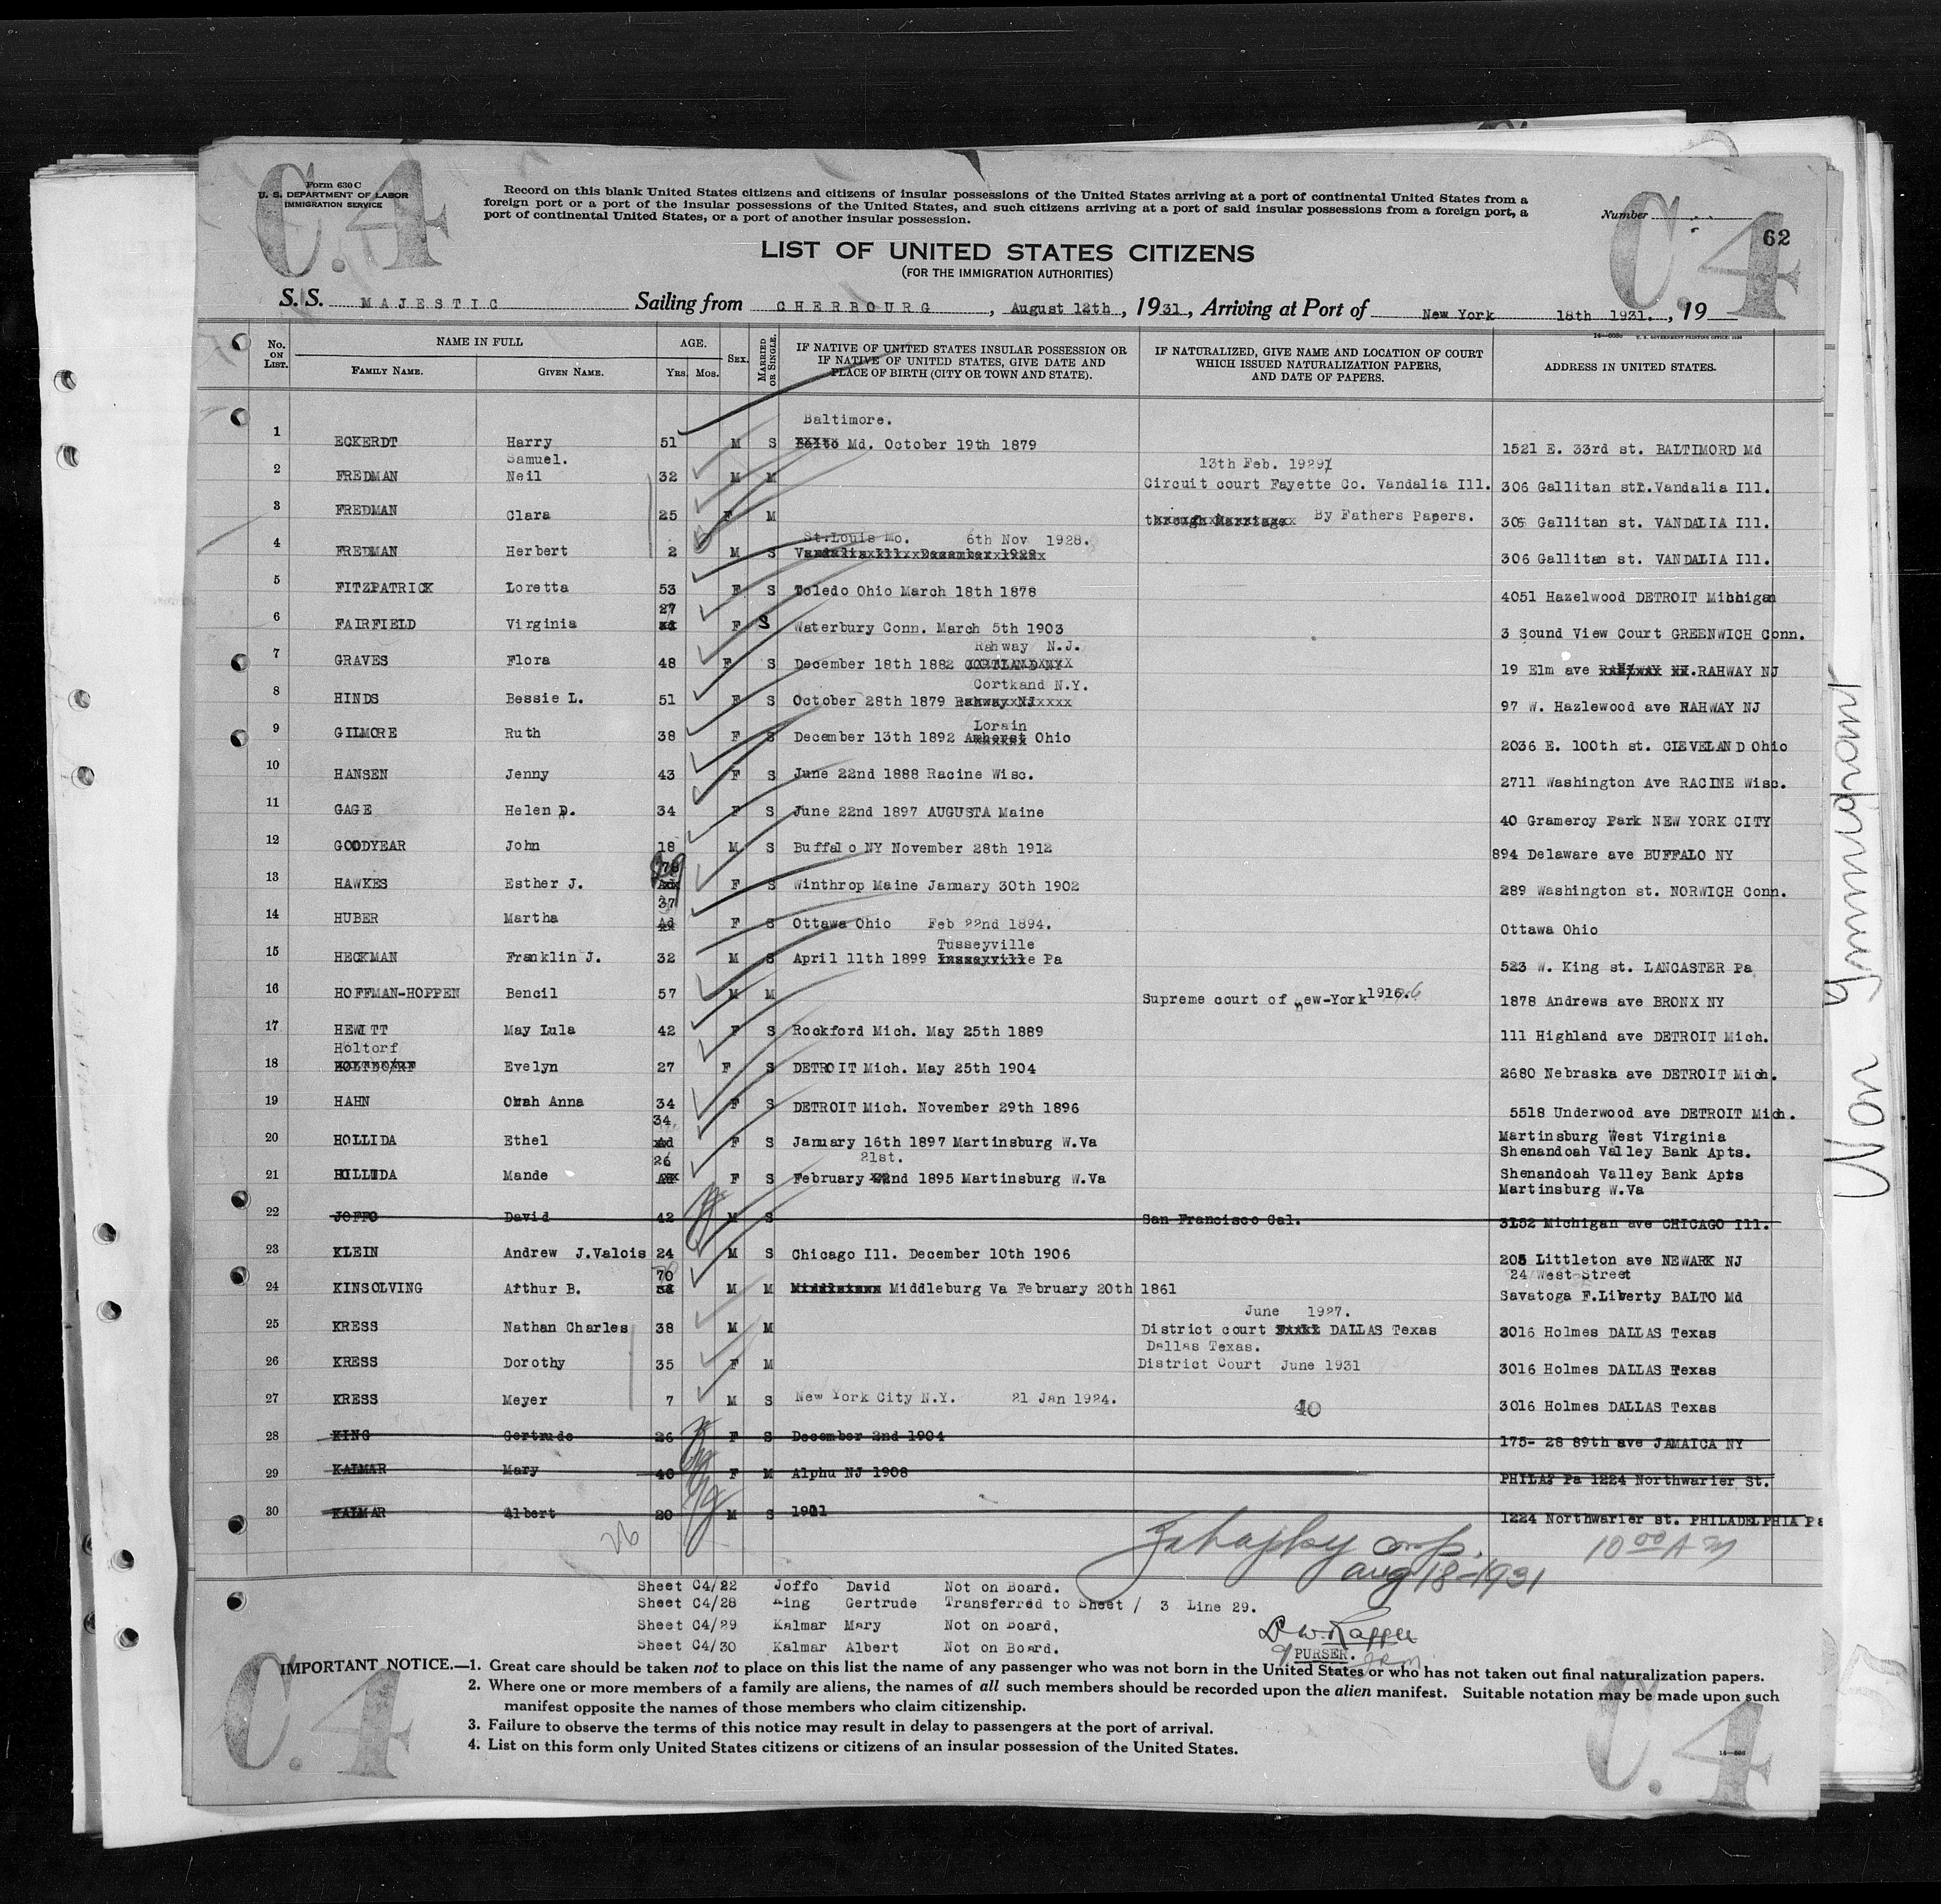 C.4
C.4
Form 630 C
U. S. DEPARTMENT OF LABOR
IMMIGRATION SERVICE
Record on this blank United States citizens and citizens of insular possessions of the United States arriving at a port of continental United States from a
foreign port or a port of the insular possessions of the United States, and such citizens arriving at a port of said insular possessions from a foreign port, a
port of continental United States, or a port of another insular possession.
Number
62
LIST OF UNITED STATES CITIZENS
(FOR THE IMMIGRATION AUTHORITIES)
S. S. MAJESTIC Sailing from CHERBOURG, August 12th, 1931, Arriving at Port of New York 18th 1931., 19
No. ON LIST. NAME IN FULL FAMILY NAME. GIVEN NAME. AGE. Yrs. Mos. SEX. MARRIED OR SINGLE. IF NATIVE OF UNITED STATES INSULAR POSSESSION OR IF NATIVE OF UNITED STATES, GIVE DATE AND PLACE OF BIRTH (CITY OR TOWN AND STATE). IF NATURALIZED, GIVE NAME AND LOCATION OF COURT WHICH ISSUED NATURALIZATION PAPERS, AND DATE OF PAPERS. ADDRESS IN UNITED STATES.
Baltimore.
1 ECKERDT Harry 51 M S Balto Md. October 19th 1879 1521 E. 33rd st. BALTIMORD Md
Samuel. 13th Feb. 1929
2 FREDMAN Neil 32 M M Circuit court Fayette Co. Vandalia Ill. 306 Gallitan str.Vandalia Ill.
3 FREDMAN Clara 25 F M through Marriage By Fathers Papers. 306 Gallitan st. VANDALIA Ill.
St.Louis Mo. 6th Nov 1928.
4 FREDMAN Herbert 2 M S Vandalia Ill. December 1929 306 Gallitan st. VANDALIA Ill.
5 FITZPATRICK Loretta 53 F S Toledo Ohio March 18th 1878 4051 Hazelwood DETROIT Michigan
27
6 FAIRFIELD Virginia F S Waterbury Conn. March 5th 1903 3 Sound View Court GREENWICH Conn.
Rahway N.J.
7 GRAVES Flora 48 F S December 18th 1882 CORTLAND NY 19 Elm ave RAHWAY NJ
Cortkand N.Y.
8 HINDS Bessie L. 51 F S October 28th 1879 Rahway NJ 97 W. Hazlewood ave RAHWAY NJ
Lorain
9 GILMORE Ruth 38 F S December 13th 1892 Amherst Ohio 2036 E. 100th st. CLEVELAND Ohio
10 HANSEN Jenny 43 F S June 22nd 1888 Racine Wisc. 2711 Washington Ave RACINE Wisc.
11 GAGE Helen D. 34 F S June 22nd 1897 AUGUSTA Maine 40 Gramercy Park NEW YORK CITY
12 GOODYEAR John 18 M S Buffalo NY November 28th 1912 894 Delaware ave BUFFALO NY
29
13 HAWKES Esther J. Ad F S Winthrop Maine January 30th 1902 289 Washington st. NORWICH Conn.
37
14 HUBER Martha Ad F S Ottawa Ohio Feb 22nd 1894. Ottawa Ohio
Tusseyville
15 HECKMAN Franklin J. 32 M S April 11th 1899 Pa 523 W. King st. LANCASTER Pa
16 HOFFMAN-HOPPEN Bencil 57 M M Supreme court of new-York 1916. 1878 Andrews ave BRONX NY
17 HEWITT May Lula 42 F S Rockford Mich. May 25th 1889 111 Highland ave DETROIT Mich.
Holtorf
18 HOLTDORF Evelyn 27 F S DETROIT Mich. May 25th 1904 2680 Nebraska ave DETROIT Mich.
19 HAHN Orah Anna 34 F S DETROIT Mich. November 29th 1896 5518 Underwood ave DETROIT Mich.
34
20 HOLLIDA Ethel Ad F S January 16th 1897 Martinsburg W.Va Martinsburg West Virginia
Shenandoah Valley Bank Apts.
26 21st.
21 HOLLIDA Mande Ad F S February 22nd 1895 Martinsburg W.Va Shenandoah Valley Bank Apts
Martinsburg W.Va
22 JOFFO David 42 M S San Francisco Cal. 3152 Michigan ave CHICAGO Ill.
23 KLEIN Andrew J.Valois 24 M S Chicago Ill. December 10th 1906 205 Littleton ave NEWARK NJ
70 24 West Street
24 KINSOLVING Arthur B. M M Middleburg Va February 20th 1861 Savatoga F.Liberty BALTO Md
June 1927.
25 KRESS Nathan Charles 38 M M District court DALLAS Texas 3016 Holmes DALLAS Texas
Dallas Texas.
26 KRESS Dorothy 35 F M District Court June 1931 3016 Holmes DALLAS Texas
27 KRESS Meyer 7 M S New York City N.Y. 21 Jan 1924. 40 3016 Holmes DALLAS Texas
28 KING Gertrude 26 F S December 2nd 1904 175- 28 89th ave JAMAICA NY
29 KALMAR Mary 40 F M Alphu NJ 1908 PHILA? Pa 1224 Northwarier St.
30 KALMAR Albert 20 M S 1911 1224 Northwarier st. PHILADELPHIA Pa
26
Aug 18-1931
10 00 AM
Sheet C4/22 Joffo David Not on Board.
Sheet C4/28 King Gertrude Transferred to Sheet / 3 Line 29.
Sheet C4/29 Kalmar Mary Not on Board,
Sheet C4/30 Kalmar Albert Not on Board.
PURSER.
IMPORTANT NOTICE.—1. Great care should be taken not to place on this list the name of any passenger who was not born in the United States or who has not taken out final naturalization papers.
2. Where one or more members of a family are aliens, the names of all such members should be recorded upon the alien manifest. Suitable notation may be made upon such
manifest opposite the names of those members who claim citizenship.
3. Failure to observe the terms of this notice may result in delay to passengers at the port of arrival.
4. List on this form only United States citizens or citizens of an insular possession of the United States.
C.4
C.4
Non Immigrant